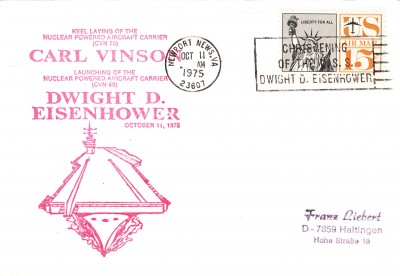 KEEL LAYING OF THE
NUCLEAR POWERED AIRCRAFT CARRIER
(CVN 70)
CARL VINSON
LAUNCHING OF THE
NUCLEAR POWERED AIRCRAFT CARRIER
(CVN 69)
DWIGHT D.
EISENHOWER
OCTOBER 11, 1975
NEWPORT NEWS, VA
OCT 11
AM
1975
23607
LIBERTY FOR ALL
US
AIR MAIL
15
CHRISTENING
OF THE U.S.S.
DWIGHT D. EISENHOWER
Franz Liebert
D - 7859 Haltingen
Hohe Straße 19